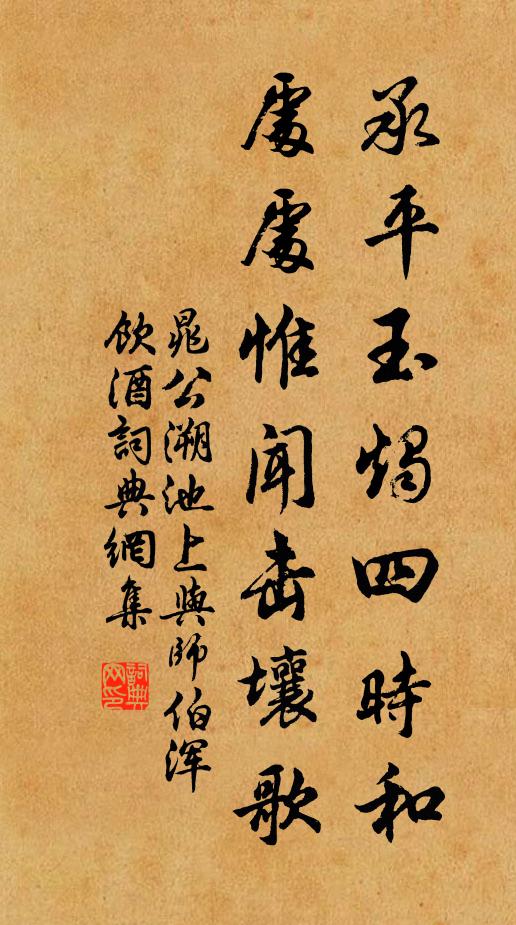 承平玉燭四時和
處處惟聞击壤歌
晁公溯池上與師伯渾
飲酒詞典網集
詞典
网印